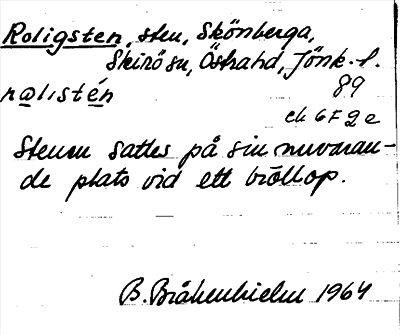 Roligsten, sten, Skönberga,
Skirö sn, Östra hd, Jönk. l.
89
rolistén
ek 6F2e
Stenen sattes på sin nuvaran-
de plats vid ett bröllop.
B. Bråkenhielm 1964